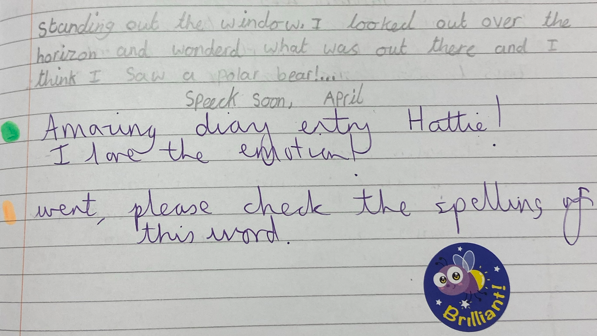 standing out the window. I looked out over the
horizon and wonderd what was out there and I
think I saw a polar bear!...
Speeck soon, April
Amazing diary entry Hattie!
I love the emotion!
went, please check the spelling of
this word.
Brilliant!